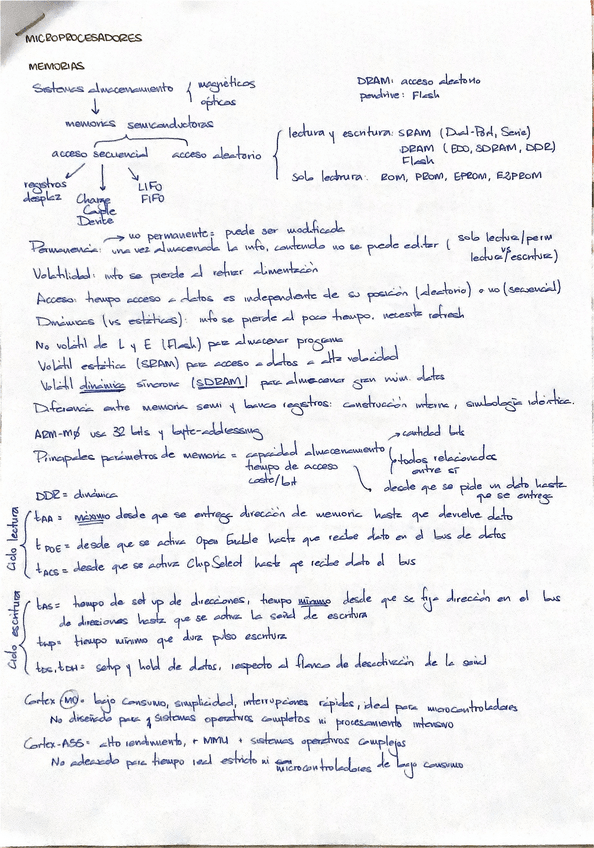 MICROPROCESADORES
MEMORIAS
Sistemas almacenamiento { magnéticos
ópticos
DRAM: acceso aleatorio
pendrive: Flash
memorias semiconductoras
acceso secuencial acceso aleatorio
lectura y escritura: SRAM (Dual-Port, Serie)
DRAM (EDO, SDRAM, DDR)
Flash
solo lectrura: ROM, PROM, EPROM, E2PROM
registros
desplaz
Charge
Couple
Device
LIFO
FIFO
→ no permanente = puede ser modificada
Permanencia: una vez almacenada la info, contenido no se puede editar ( solo lectura/perm
vs
lectura/escritura)
Volatilidad: info se pierde al retirar alimentación
Acceso: tiempo acceso a datos es independiente de su posición (aleatorio) o no (secuencial)
Dinámicas (vs estáticas): info se pierde al poco tiempo, necesita refresh
No volátil de L y E (Flash) para almacenar programa
Volátil estática (SRAM) para acceso a datos a alta velocidad
Volátil dinámica síncrona (SDRAM) para almacenar gran núm. datos
Diferencia entre memoria semi y banco registros: construcción interna, simbología idéntica.
ARM-MØ usa 32 bits y byte-addressing
Principales parámetros de memoria = capacidad almacenamiento → cantidad bits
tiempo de acceso
coste/bit
todos relacionados
entre sí
desde que se pide un dato hasta
que se entrega
DDR = dinámica
Ciclo lectura
tAA = máximo desde que se entrega dirección de memoria hasta que devuelve dato
tDOE = desde que se activa Open Enable hasta que recibe dato en el bus de datos
tACS = desde que se activa Chip Select hasta qe recibe dato el bus
Ciclo escritura
tAS = tiempo de set up de direcciones, tiempo mínimo desde que se fija dirección en el bus
de direciones hasta que se activa la señal de escritura
twp = tiempo mínimo que dura pulso escritura
tDS, tDH = setup y hold de datos, respecto al flanco de desactivación de la señal
Cortex MO = bajo consumo, simplicidad, interrupciones rápidas, ideal para microcontroladores
No diseñado para sistemas operativos completos ni procesamiento intensivo
Cortex-A55 = alto rendimiento, + MMU + sistemas operativos complejos
No adecuado para tiempo real estricto ni microcontroladores de bajo consumo